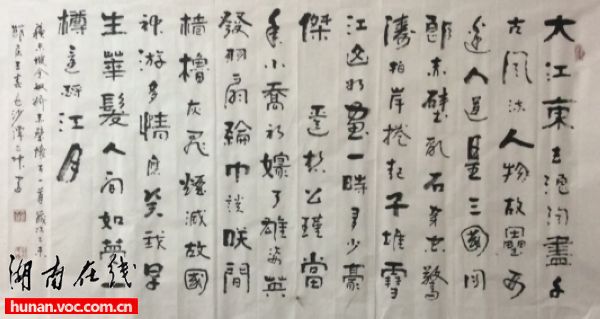 大江東去浪淘盡千
古風流人物故壘西
邊人道是三國周
郎赤壁亂石穿空驚
濤拍岸捲起千堆雪
江山如畫一時多少豪
傑 遙想公瑾當
年小喬初嫁了雄姿英
發羽扇綸巾談咲間
檣櫓灰飛煙滅故國
神游多情應笑我早
生華髮人間如夢一
樽還酹江月
蘇東坡念奴嬌赤壁懷古一首歲次
湖南在线
hunan.voc.com.cn